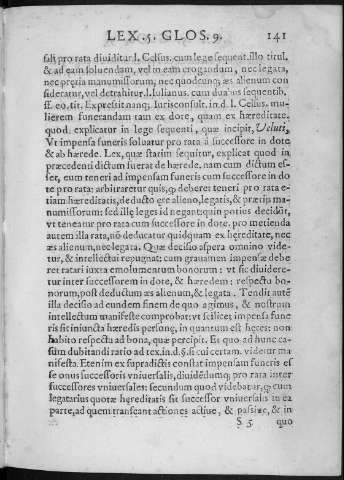 LEX .5. GLOS. 9. 141
sali pro rata diuiditur.l. Celsus. cum lege sequent. illo titul.
& ad eam soluendam, vel ĩn eam erogandum, nec legata,
nec prętia manumissorum, nec quodcunq; æs alienum con
sideratur, vel detrahitur.l. iulianus. cum duabus sequentib.
ff. eo. tit. Expressit nanq; Iurisconsult. in d.l. Celsus. mu-
lierem funerandam tam ex dote, quam ex hæreditate.
quod. explicatur in lege sequenti, quæ incipit, Veluti,
Vt impensa funeris soluatur pro rata à successore in dote
& ab hærede. Lex, quæ statim sequitur, explicat quod in
præcedenti dictum fuerat de hærede, nam cum dictum es-
set, eum teneri ad impensam funeris cum successore in do
te pro rata: arbitraretur quis, q̃ deberet teneri pro rata e-
tiam hæreditatis, deducto ęre alieno, legatis, & prætijs ma-
numissorum: sed illę leges id negant: quin potius decidũt,
vt teneatur pro rata cum successore in dote. pro metienda
autem illa rata, nõ deducatur quidquam ex hęreditate, nec
æs alienum, nec legata. Quæ decisio aspera omnino vide-
tur, & intellectui repugnat: cum grauamen impensæ debe
ret ratari iuxta emolumentum bonorum: vt sic diuidere-
tur inter successorem in dote, & hæredem: respectu bo-
norum, post deductum æs alienum, & legata. Tendit autẽ
illa decisio ad eundem finem de quo agimus, & nostrum
intellectum manifeste comprobat: vt scilicet impensa fune
ris sit iniuncta hæredis personę, in quantum est heres: non
habito respectu ad bona, quæ percipit. Et quo ad hunc ca-
sum dubitandi ratio ad tex. in d. §. si cui certam. videtur ma
nifesta. Etenim ex supradictis constat impensam funeris es
se onus successoris vniuersalis, diuidẽdumq; pro rata inter
successores vniuersales: secundum quod videbatur, q̃
legatarius quotæ hęreditatis sit successor vniuersalis in ea
parte, ad quem transeant actiones actiue, & passiue, & in
§ 5 quo